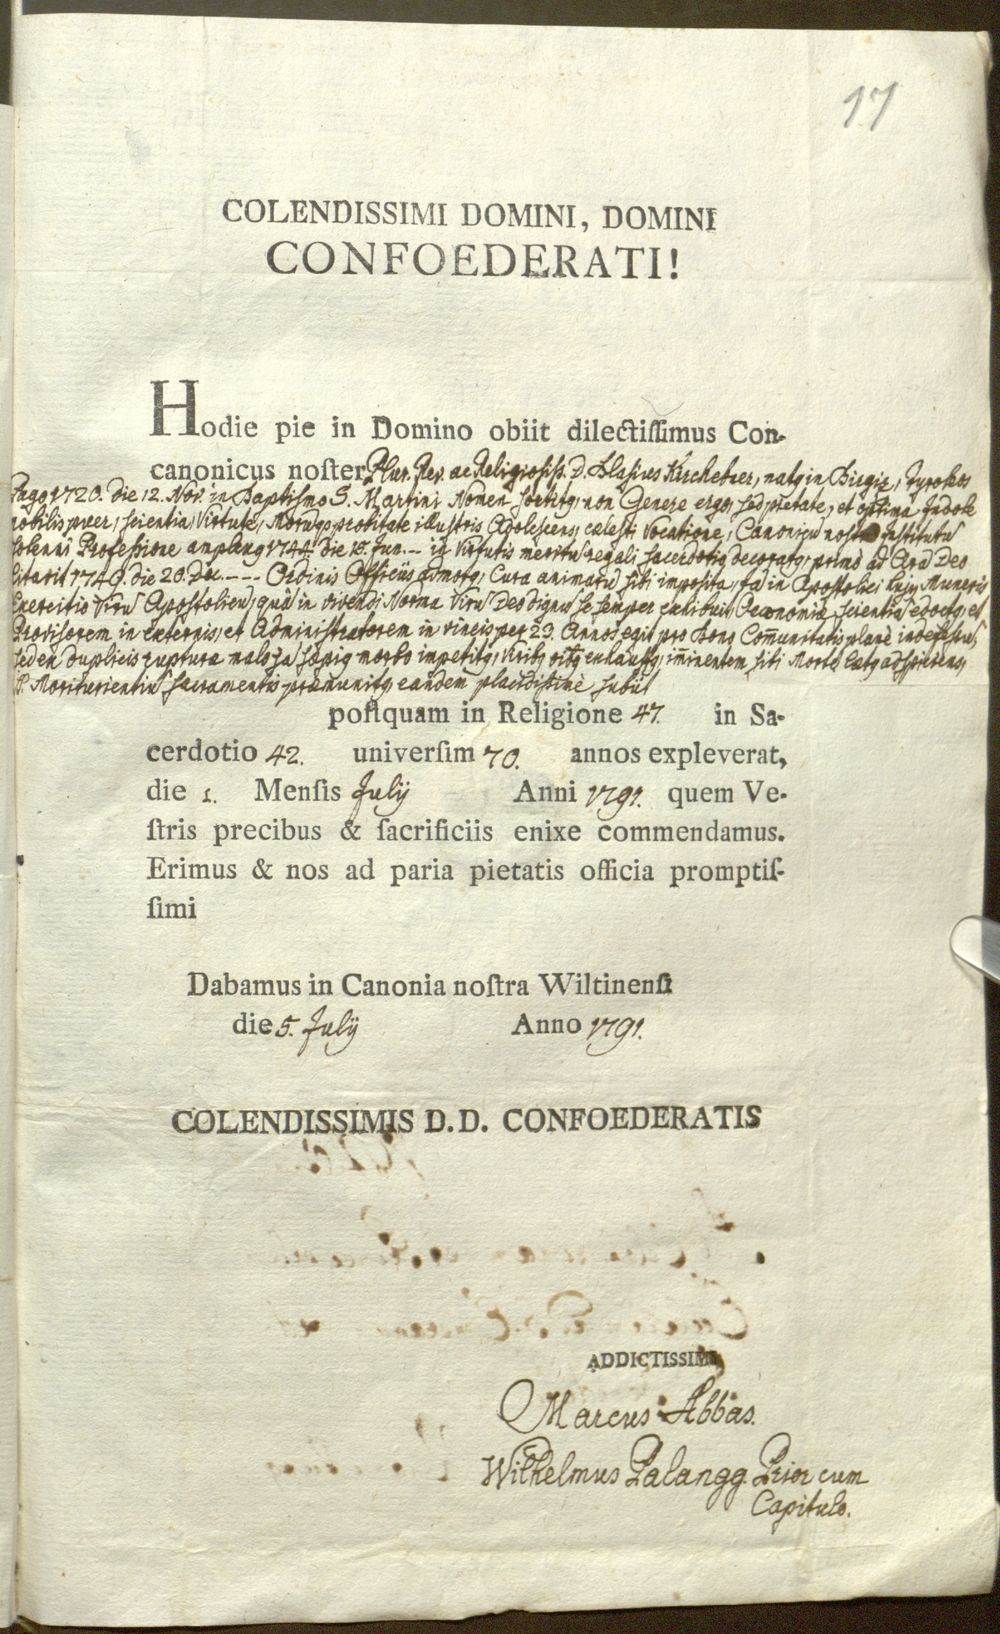 17
COLENDISSIMI DOMINI, DOMINI
CONFOEDERATI!
Hodie pie in Domino obiit dilectiſſimus Con-
canonicus noſter Plur. Rev. ac Religiosiss. D. Blasius Kirchebner, natq in Tyrolis
Pago 1720. die 12. Nov. in Baptismo S. Martini Nomen sortitq, non Genere ergo, sed pietate, et optima Indole
nobilis puer, scientia, Virtute, Morumqs probitate illustris Adolescens, cælesti Vocatione, Canonicu nostro Institutu
solenni Professione amplexq 1744. die 18. Jun. in Virtutis meritu regali sacerdotio decoratq, primo ad Ara Deo
Litavit 1748. die 20. Dec. --- Ordinis Officiis admotq, Cura animaru sibi imposita, in Apostolici hujq Muneris
Exercitio Viru Apostolicu, qua in vivendi Norma Viru Deo dignu se semper exhibuit, Oeconomiæ scientia edoctq, et
Provisorem in externis, et Administratorem in vineis per 23. Annos egit pro bono Comunitatis plane indefessu,
sed ex duplicis rupturæ malo sæpiq morbo impetitq, Viribq exhaustq, iminentem sibi Morte
P. Moriturientiu sacramentis præmunitq eandem placidissime subiit
poſtquam in Religione 47. in Sa-
cerdotio 42. univerſim 70. annos expleverat,
die 1. Menſis July Anni 1791. quem Ve-
ſtris precibus & ſacrificiis enixe commendamus.
Erimus & nos ad paria pietatis officia promptiſ-
ſimi
Dabamus in Canonia noſtra Wiltinenſi
die 5. July Anno 1791.
COLENDISSIMIS D.D. CONFOEDERATIS
ADDICTISSIMI
Marcus Abbas.
Wilhelmus Palangg Prior cum
Capitulo.